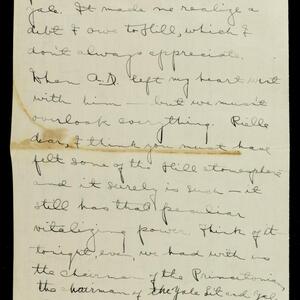 Yale. It made me realize a
debt I owe to Hill, which I
don't always appreciate.
When A.D. left my heart went
with him — but we mustn't
overlook everything.
dear, I think you must have
felt some of the Hill atmosphere
and it surely is such — it
still has that peculiar
vitalizing power. Think of it —
tonight, even, we had with us
the chairman of the Princetonian,
the chairman of the Yale Lit and Yale